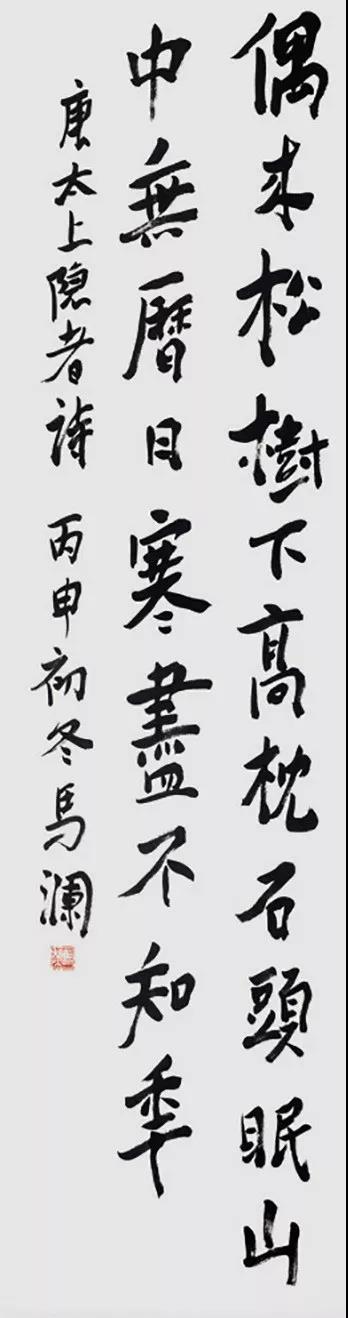 偶来松樹下高枕石頭眠山
中無曆日寒盡不知年
唐太上隐者诗 丙申初冬马澜